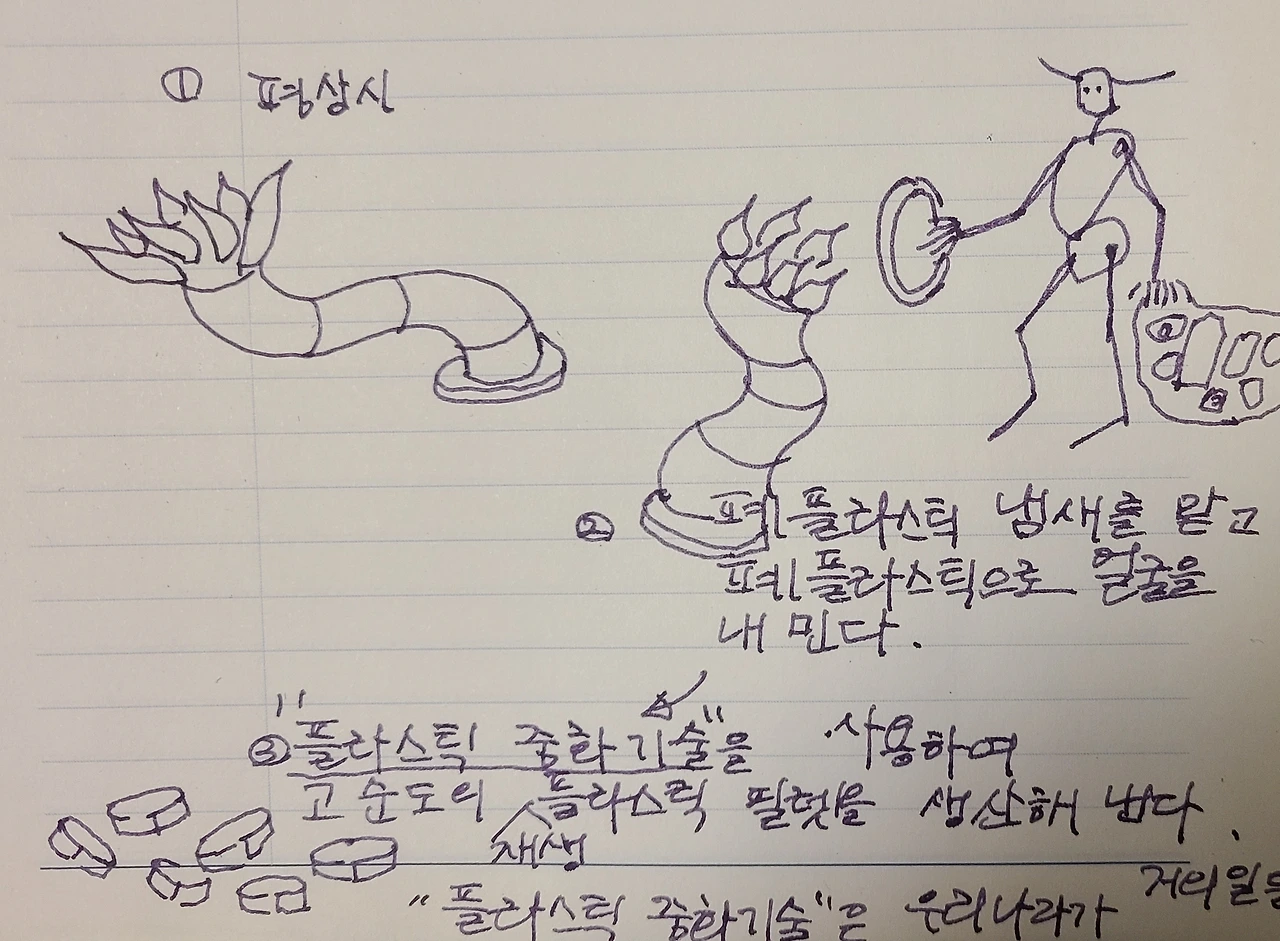 ① 평상시
② 폐플라스틱 냄새를 맡고
폐플라스틱으로 얼굴을
내민다.
③ "플라스틱 중화기술"을 사용하여
고순도의 재생 플라스틱 펠렛을 생산해 낸다.
"플라스틱 중화기술"은 우리나라가 거의 일을